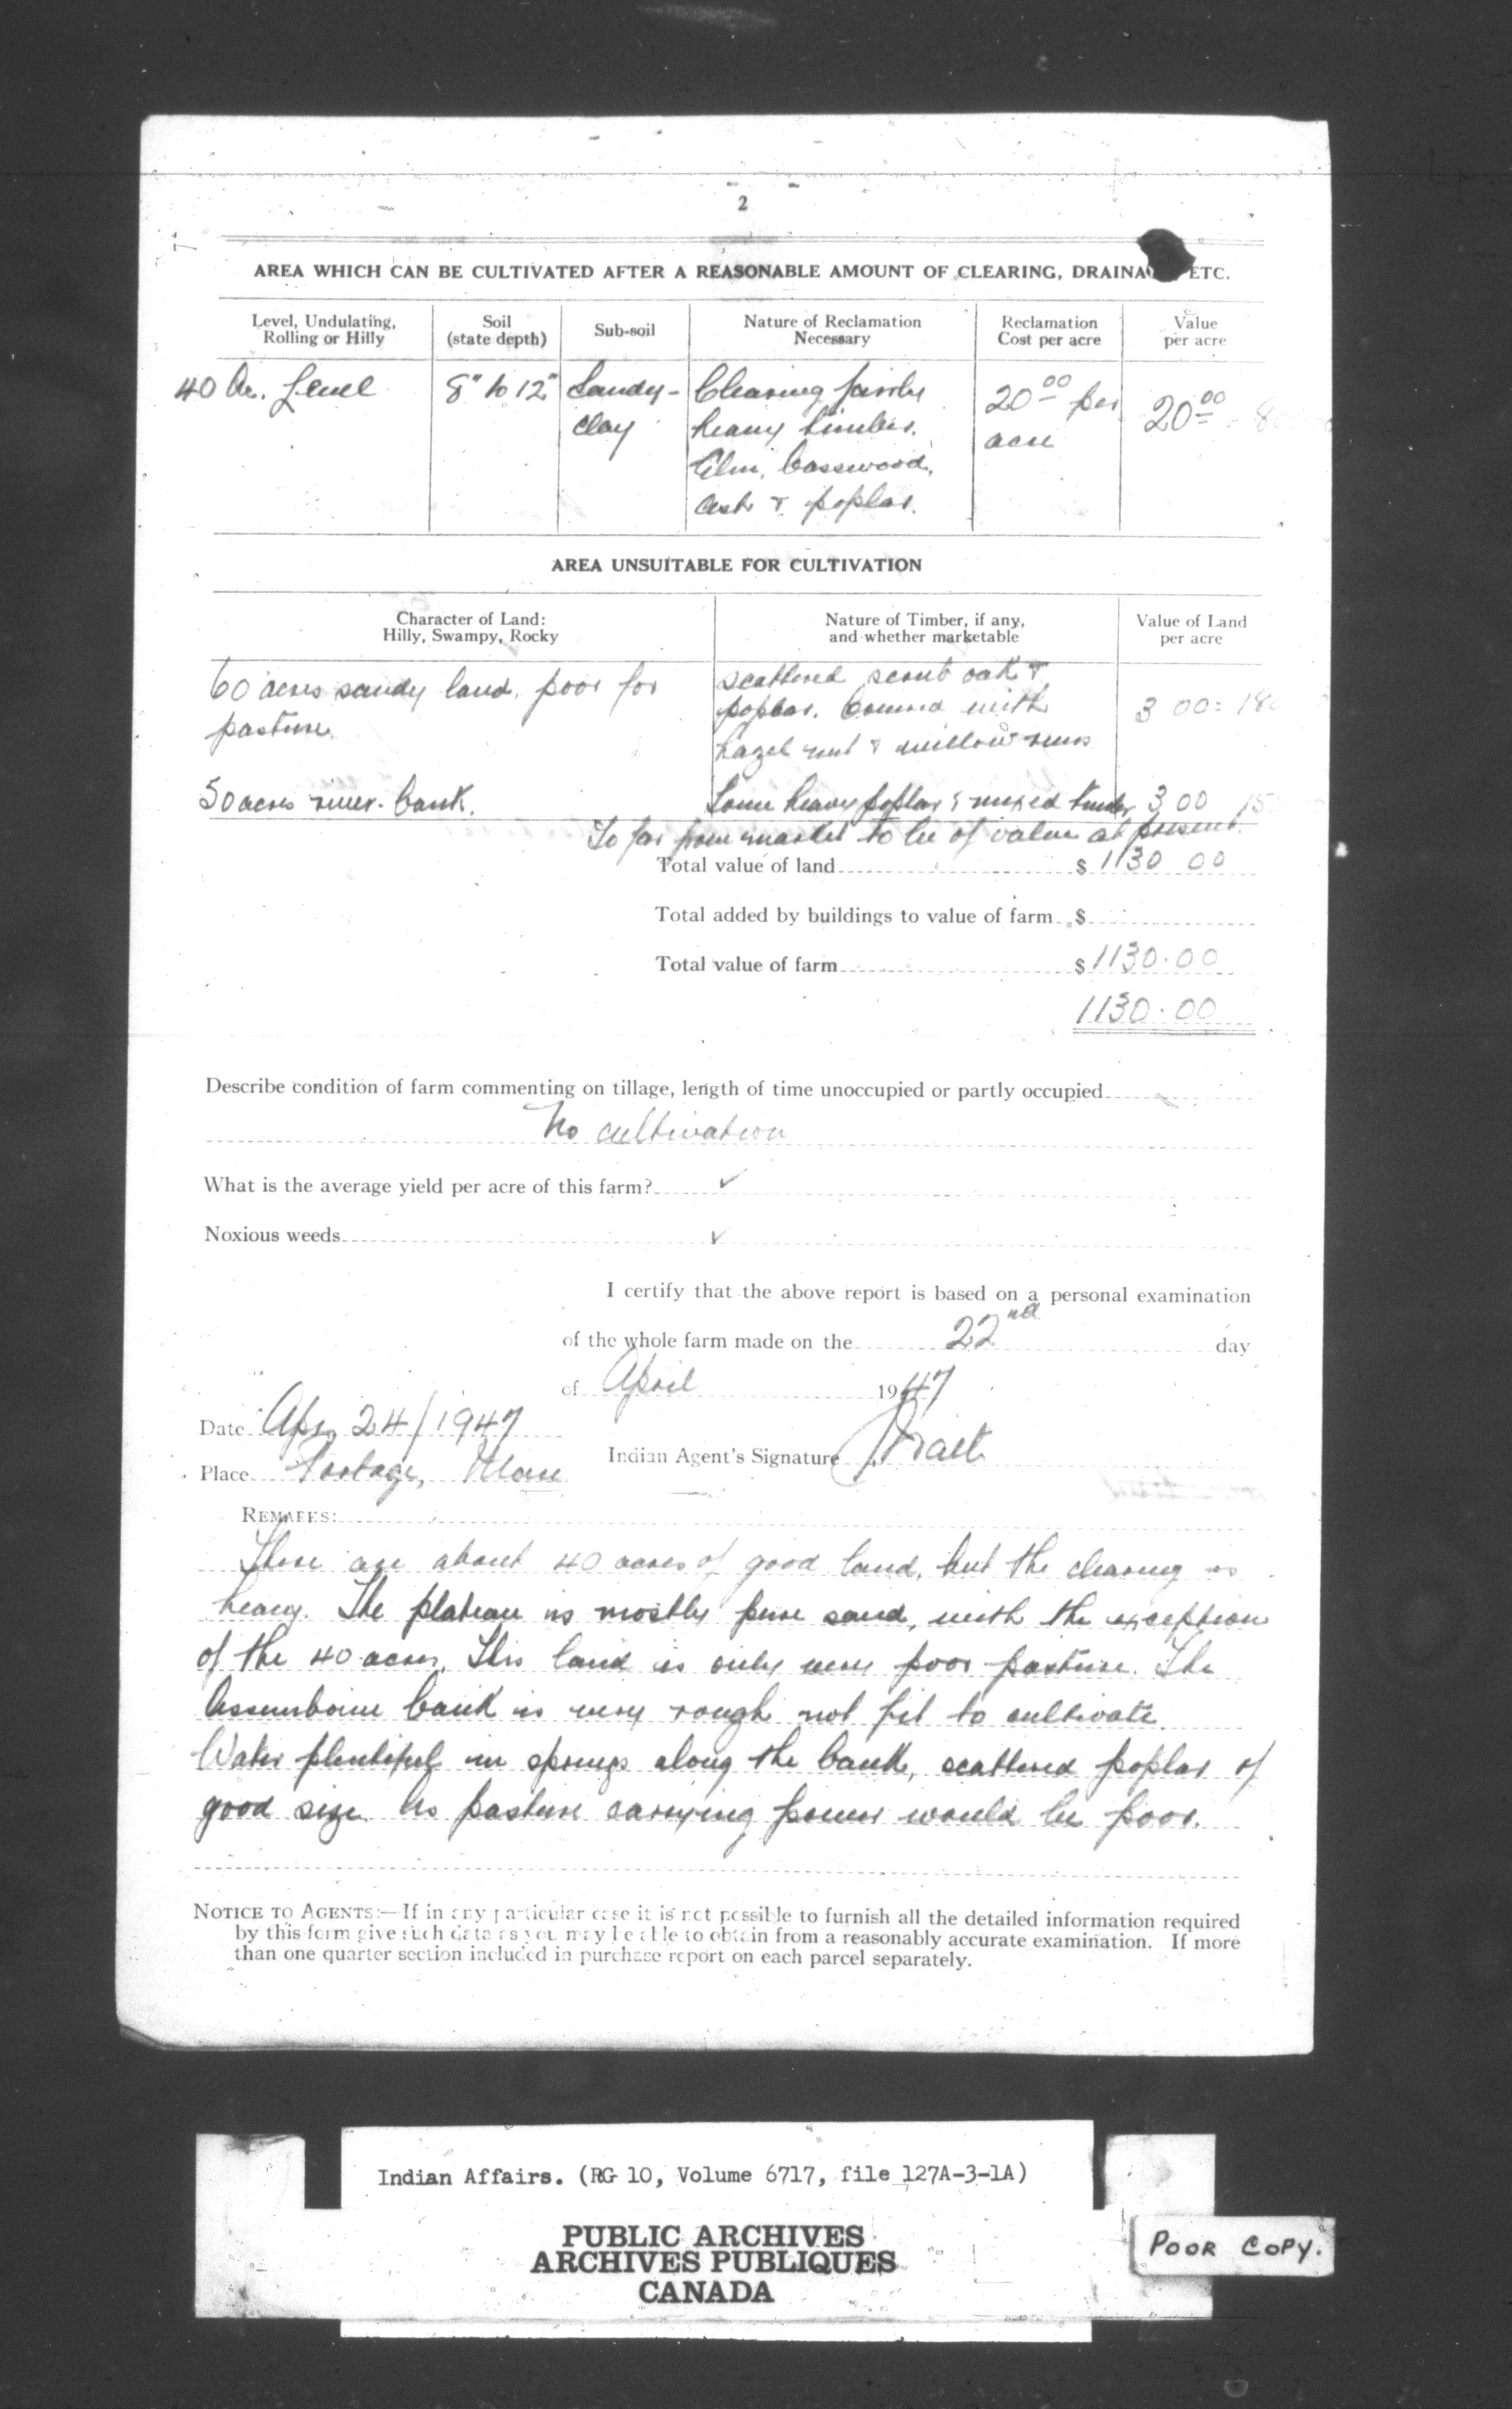 2
AREA WHICH CAN BE CULTIVATED AFTER A REASONABLE AMOUNT OF CLEARING, DRAINA ETC.
Level, Undulating, Rolling or Hilly
Soil (state depth)
Sub-soil
Nature of Reclamation Necessary
Reclamation Cost per acre
Value per acre
40 Ac. Level
8" to 12"
Sandy-
clay
Clearing fairly
heavy timber.
Elm, basswood,
ash & poplar.
20.00 per
acre
20.00
AREA UNSUITABLE FOR CULTIVATION
Character of Land: Hilly, Swampy, Rocky
Nature of Timber, if any, and whether marketable
Value of Land per acre
60 acres sandy land, poor for
pasture.
scattered scrub oak &
poplar. Covered with
hazel nut & willow
3 00 = 180
50 acres river bank.
Some heavy poplar & mixed timber
3 00 15
To far from market to be of value at present.
Total value of land $ 1130 00
Total added by buildings to value of farm $
Total value of farm $ 1130.00
1130.00
Describe condition of farm commenting on tillage, length of time unoccupied or partly occupied
No cultivation
What is the average yield per acre of this farm? ✓
Noxious weeds ✓
I certify that the above report is based on a personal examination
of the whole farm made on the 22nd day
of April 1947
Date Apr 24/1947
Indian Agent's Signature
Place Portage, Man
REMARKS:
There are about 40 acres of good land, but the clearing is
heavy. The plateau is mostly pure sand, with the exception
of the 40 acres. This land is only very poor pasture. The
Assiniboine bank is very rough not fit to cultivate.
Water plentiful in springs along the bank, scattered poplar of
good size. As pasture carrying power would be poor.
NOTICE TO AGENTS:—If in any particular case it is not possible to furnish all the detailed information required
by this form give such data as you may be able to obtain from a reasonably accurate examination. If more
than one quarter section included in purchase report on each parcel separately.
Indian Affairs. (RG 10, Volume 6717, file 127A-3-1A)
PUBLIC ARCHIVES
ARCHIVES PUBLIQUES
CANADA
POOR COPY.